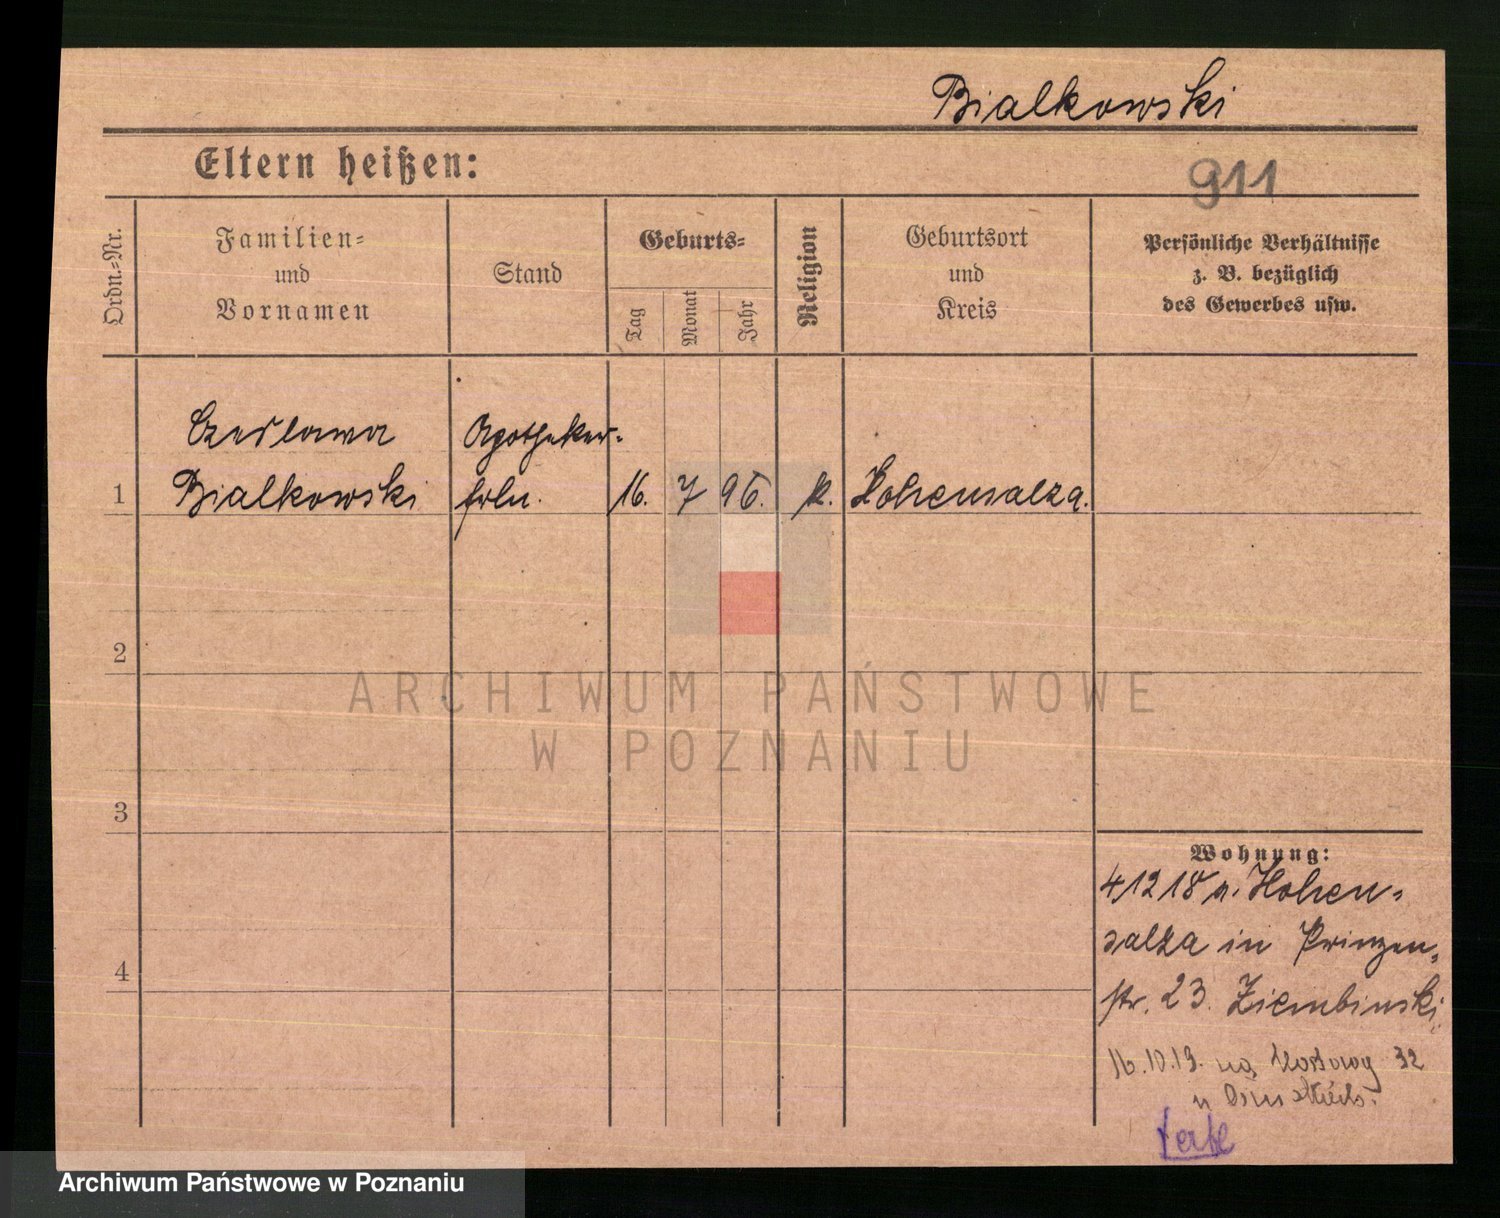 Bialkowski
Eltern heißen:
911
Ordn.-Nr.
Familien-
und
Vornamen
Stand
Geburts-
Tag
Monat
Jahr
Religion
Geburtsort
und
Kreis
Persönliche Verhältnisse
z. B. bezüglich
des Gewerbes usw.
Czeslawa
Apotheker-
1
Bialkowski
16. 7 96. k. Hohensalza.
2
ARCHIWUM PAŃSTWOWE
W POZNANIU
3
Wohnung:
41218 v. Hohen-
salza in Prinzen-
4
str. 23. Ziembinski
16.10.19. na 32
u
verte
Archiwum Państwowe w Poznaniu